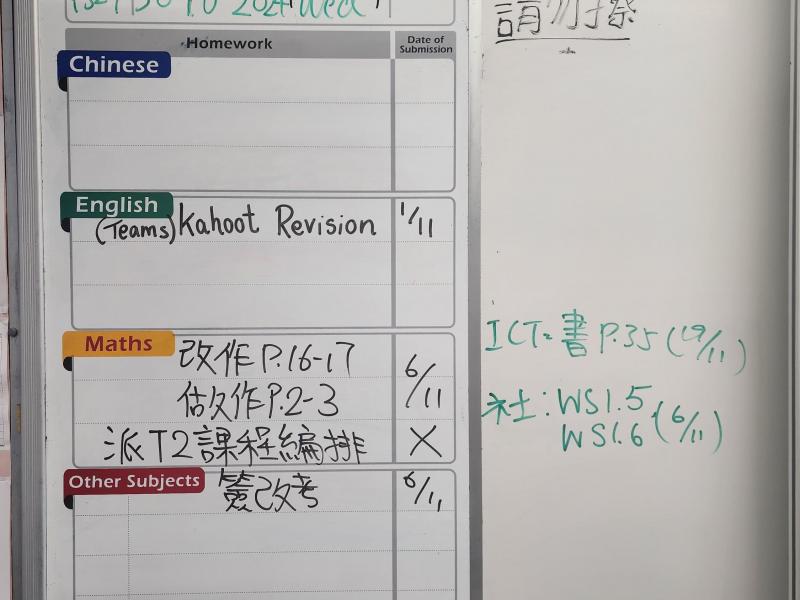 2024 (Wed)
請勿擦
Homework
Date of Submission
Chinese
English
(Teams) Kahoot Revision 1/11
Maths
改作 P.16-17 6/11
估欠作 P.2-3
派T2課程編排 X
Other Subjects
簽改考 6/11
ICT: 書 P.35 (19/11)
社: WS1.5
WS1.6 (6/11)